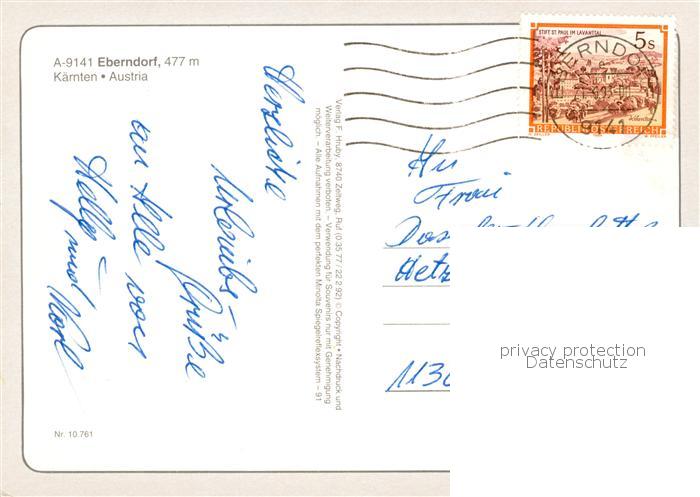 A-9141 Eberndorf, 477 m
Kärnten • Austria
Herzliche
Urlaubs-
Grüße
an Alle von
und Karl
Nr. 10.761
Verlag F. Hruby, 8740 Zeltweg, Ruf (0 35 77 / 22 2 92) © Copyright • Nachdruck und
Weiterverarbeitung verboten. – Verwendung für Souvenirs nur mit Genehmigung
möglich. – Alle Aufnahmen mit dem perfekten Minolta Spiegelreflexsystem – 91
STIFT ST. PAUL IM LAVANTTAL
5s
REPUBLIK ÖSTERREICH
EBERNDORF
9141
Frau
113
privacy protection
Datenschutz